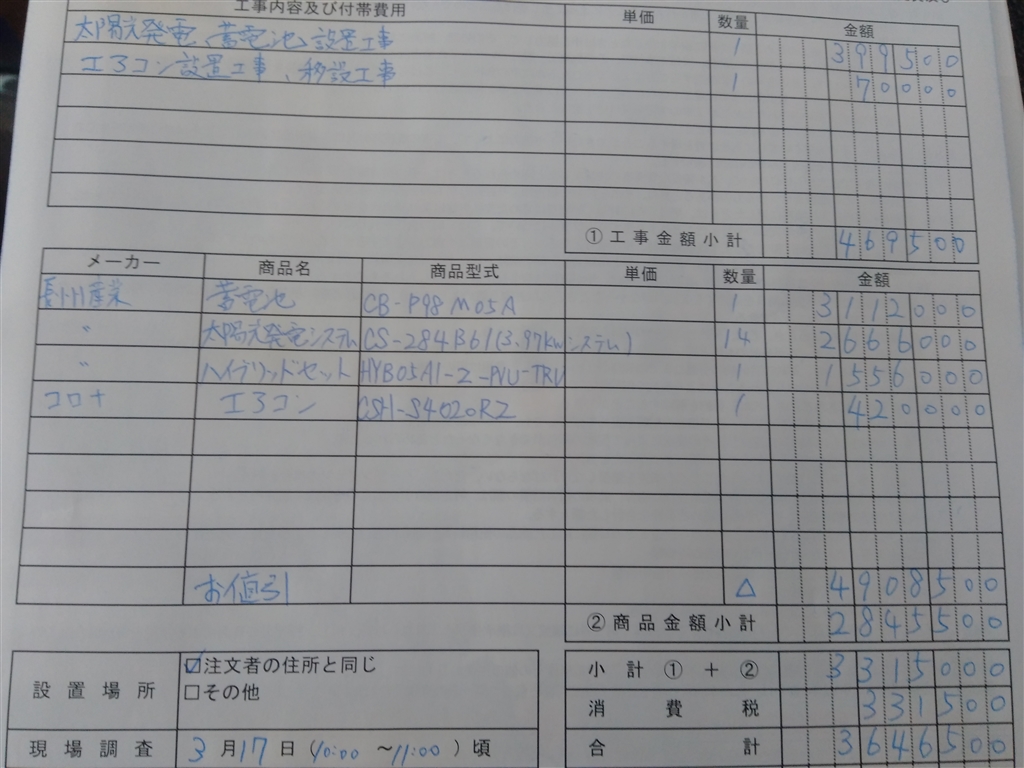 工事内容及び付帯費用 単価 数量 金額
太陽光発電、蓄電池設置工事 1 399500
エアコン設置工事、移設工事 1 70000
①工事金額小計 469500
メーカー 商品名 商品型式 単価 数量 金額
長州産業 蓄電池 CB-P98M05A 1 3112000
〃 太陽光発電システム CS-284B61(3.97kwシステム) 14 2666000
〃 ハイブリッドセット HYB05A1-Z-PVU-TRV 1 1556000
コロナ エアコン CSH-S4020R2 1 420000
お値引 △ 4908500
②商品金額小計 2845500
設置場所 ☑注文者の住所と同じ
□その他
小計①+② 3315000
消費税 331500
現場調査 3月17日(10:00 ~11:00)頃
合計 3646500